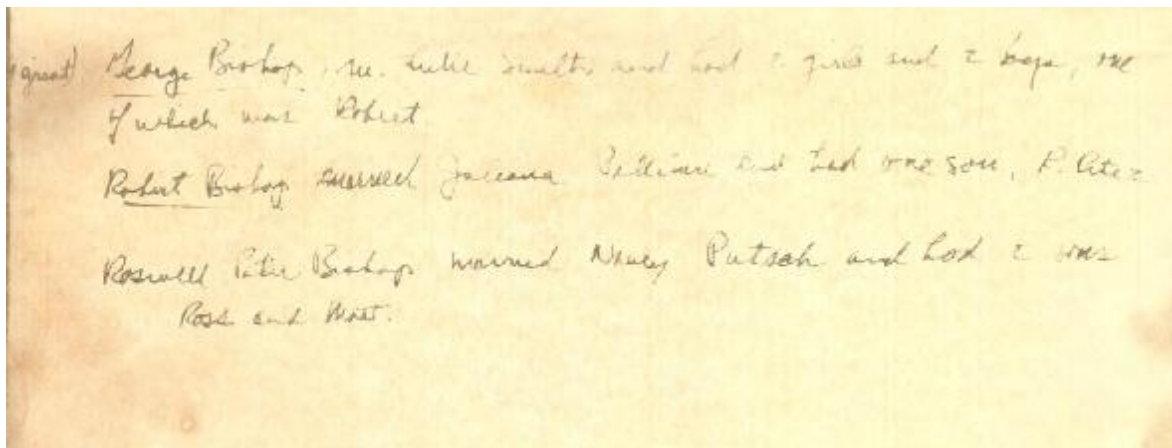 great) George Bishop, m. Julie Smith and had 2 girls and 2 boys, one
of which was Robert
Robert Bishop married and had one son, R. Peter
Roswell Peter Bishop married Nancy Putsch and had 2 sons
Ross and Matt.